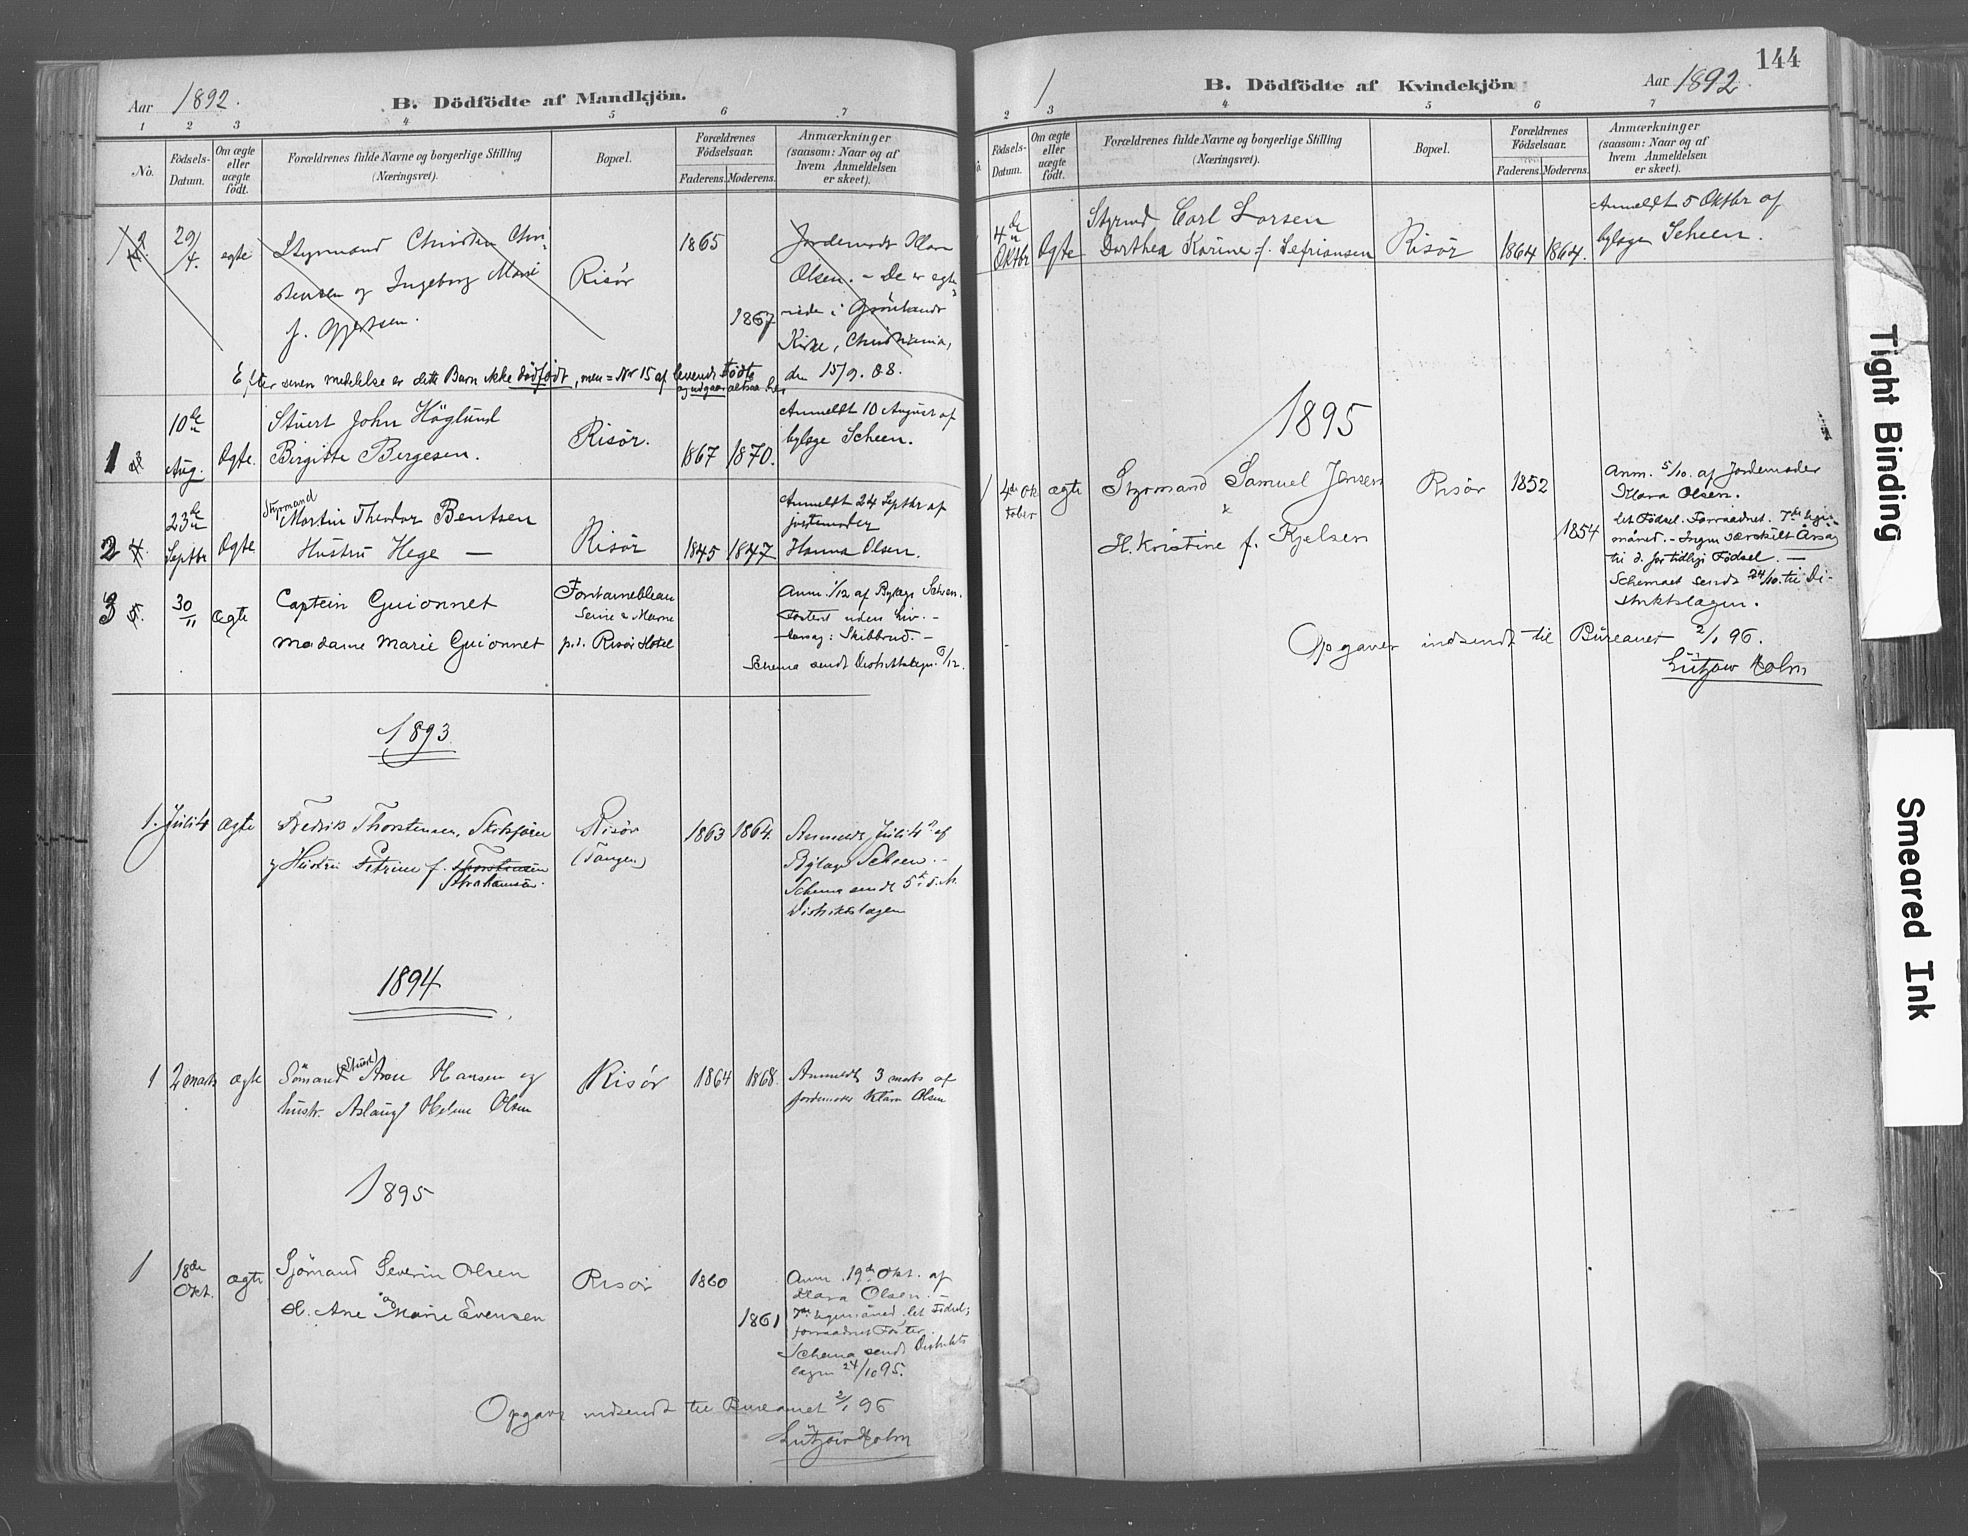 Aar 1892.
B. Dödfödte af Mandkjön.
1 2 3 4 5 6 7
No.
Födsels-Datum.
Om ægte eller uægte født.
Forældrenes fulde Navne og borgerlige Stilling (Næringsvei).
Bopæl.
Forældrenes Födselsaar.
Faderens. Moderens.
Anmærkninger (saasom: Naar og af hvem Anmeldelsen er skeet).
29/4. egte Styrmand Christen Chri-
stensen og Ingeborg Marie
f. Gjertsen.
Risør
1865
1867
Jordemoder Klara
Olsen. – De er egte-
viede i Grønlands
Kirke, Christiania,
den 15/9. 88.
Efter senere meddelelse er dette Barn ikke dödfødt, men = Nr 15 af levende Fødte
og udgaar altsaa her
1 10de Aug. Ægte. Stuert John Höglund
Birgitte Bergesen.
Risör. 1867 1870.
Anmeldt 10 August af
bylæge Scheen.
2 4. 23de Septbr Ægte Styrmand
Martin Theodor Bentsen
Hustru Hege —
Risör 1845 1847
Anmeldt 24 Septbr af
jordemoder
Hanna Olsen.
3 5. 30/11 Ægte Captein Guionnet
Madame Marie Guionnet
Fontainebleau
Seine & Marne
p.t. Risør Hotel
Anm. 1/12 af Bylæge Scheen.
Fosteret uden Liv. –
Aarsag: Skibbrud. –
Schema sendt Distriktslægen 6/12.
1893
1. Juli 4 Ægte Fredrik Thorstensen, Skibsfører
og Hustru Petrine f. Thorstensen
Abrahamsen.
Risør
(Tangen)
1863 1864.
Anmeldt Juli 4de af
Bylæge Scheen. –
Schema sendt 5te d. M.
Distriktslægen
1894
1 2 marts ægte Sömand (Stuert) Aron Hansen og
hustr. Aslaug Helene Olsen
Risör 1864 1868.
Anmeldt 3 marts af
jordemoder Klara Olsen
1895
1 18de Okt. ægte Sjömand Severin Olsen
H. Ane Marie Evensen
Risør 1860
1861
Anm. 19de Okt. af
Klara Olsen. –
7de Ugemåned. let Fødsel;
forraadnet Foster.
Schema sendt Distrikts
lægen 24/10 95.
Opgave indsendt til Bureauet 2/1 96
Lützow Holm
144
1
B. Dödfödte af Kvindekjön
Aar 1892.
2 3 4 5 6 7
Födsels-Datum.
Om ægte eller uægte født.
Forældrenes fulde Navne og borgerlige Stilling (Næringsvei).
Bopæl.
Forældrenes Födselsaar.
Faderens. Moderens.
Anmærkninger (saasom: Naar og af hvem Anmeldelsen er skeet).
4de Oktbr Ægte Styrmd Carl Larsen
Dorthea Karine f. Sefriansen
Risör 1864 1864.
Anmeldt 5 Oktbr af
bylæge Scheen.
1895
1 4de Ok
tober ægte Styrmand Samuel Jensen
&
H. Kristine f. Kjelsen
Risör 1852
1854
Anm. 5/10. af Jordemoder
Klara Olsen.
let Födsel. Forraadnet. 7de Uge-
måned. – Ingen særskilt Årsag
til d. for tidlige Födsel –
Schemaet sendt 24/10. til Di-
striktslægen.
Opgaver indsendt til Bureauet 2/1 96.
Lützow Holm
Tight Binding
Smeared Ink